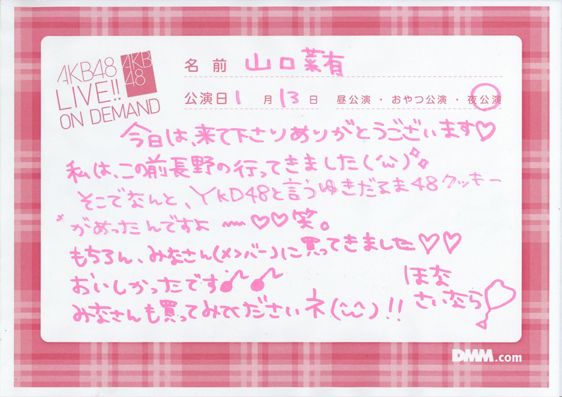 AKB48
LIVE!!
ON DEMAND
AKB
48
名前 山口菜有
公演日 1 月 13 日 昼公演・おやつ公演・夜公演
今日は、来て下さりありがとうございます♡
私は、この前長野の行ってきました(^ω^)
そこでなんと、YKD48と言うゆきだるま48クッキー
があったんですよ〜♡♡笑。
もちろん、みなさん(メンバー)に買ってきました♡♡
おいしかったです♪♪
みなさんも買ってみてくださいネ(^ω^)!!
ほな
さいなら
DMM.com